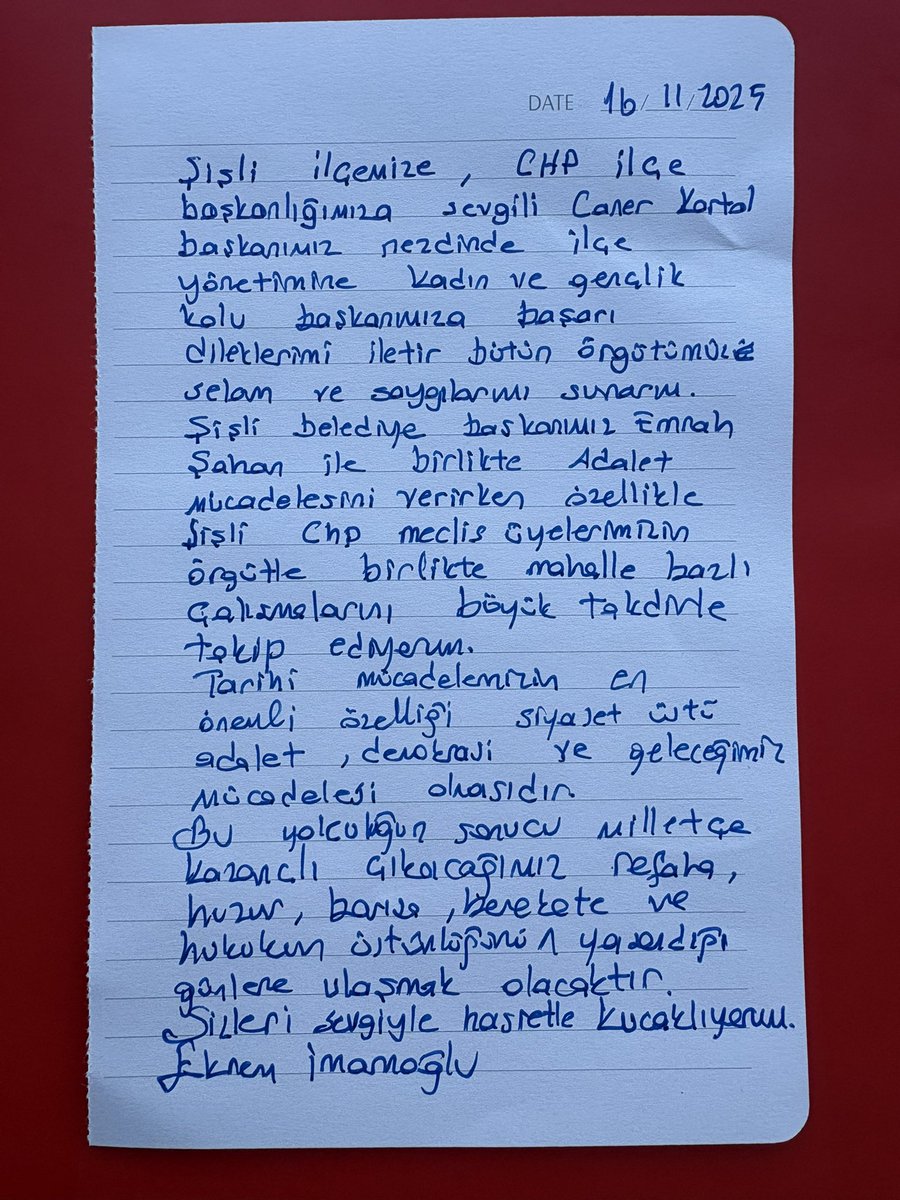 DATE 16/11/2025
Şişli ilçemize, CHP ilçe
başkanlığımıza sevgili Caner Kartal
başkanımız nezdinde ilçe
yönetimine kadın ve gençlik
kolu başkanımıza başarı
dileklerimi iletir bütün örgütümüze
selam ve saygılarımı sunarım.
Şişli belediye başkanımız Emrah
Şahan ile birlikte Adalet
mücadelesini verirken özellikle
Şişli Chp meclis üyelerimizin
örgütle birlikte mahalle bazlı
çalışmalarını büyük takdirle
takip ediyorum.
Tarihi mücadelemizin en
önemli özelliği siyaset üstü
adalet, demokrasi ve geleceğimiz
mücadelesi olmasıdır.
Bu yolculuğun sonucu milletçe
kazançlı çıkacağımız refaha,
huzur, barışa, berekete ve
hukukun üstünlüğünün yaşandığı
günlere ulaşmak olacaktır.
Sizleri sevgiyle hasretle kucaklıyorum.
Ekrem İmamoğlu